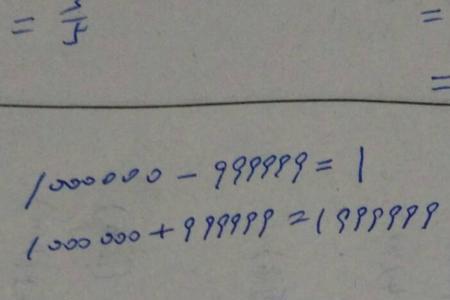 = 3/5 =
=
1000000 - 999999 = 1
1000000 + 999999 = 1999999